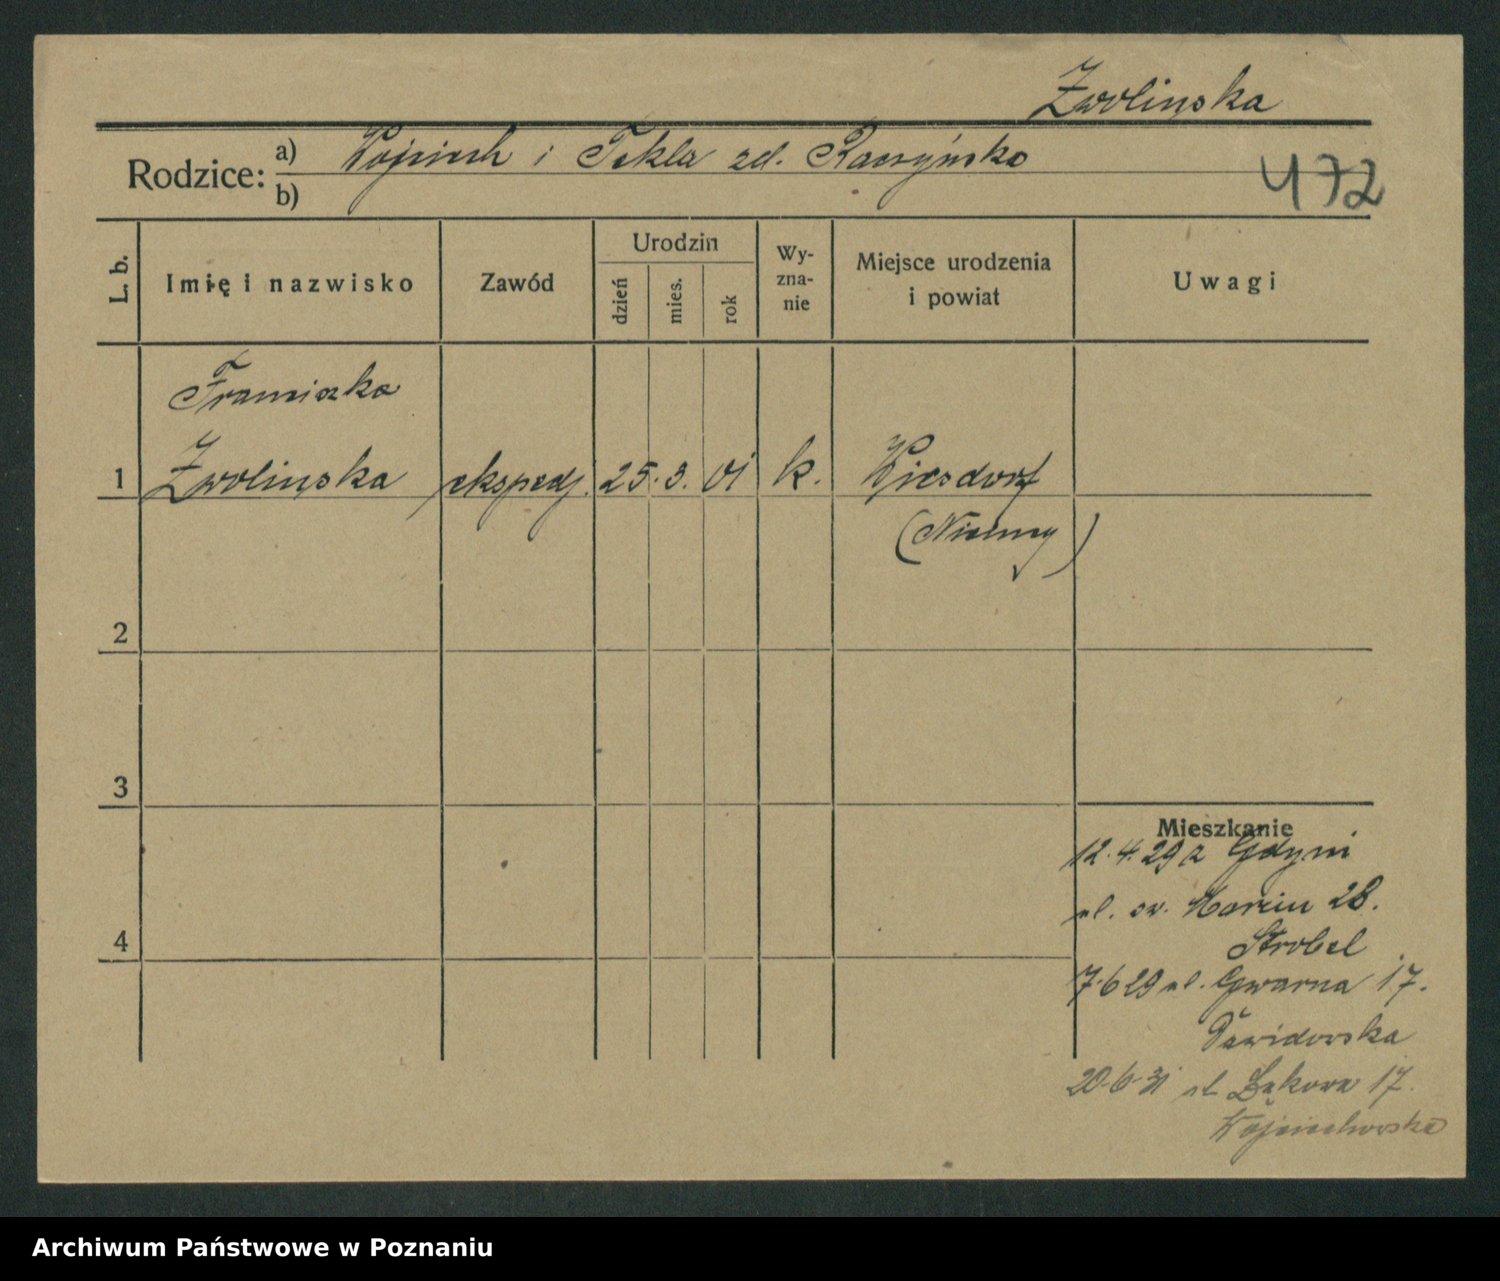 Zwolinska
Rodzice: a) Wojciech i Tekla zd. Raczyńska
b)
472
L. b.
Imię i nazwisko
Zawód
Urodzin
dzień
mies.
rok
Wy-
zna-
nie
Miejsce urodzenia
i powiat
Uwagi
Franciszka
1 Zwolinska ekspedj. 25. 3. 01 k. Wiesdorf
(Niemcy)
2
3
Mieszkanie
12.4.29 z Gdyni
ul. św. Marcin 28.
Strobel
4
7.6 29 ul. Gwarna 17.
Dawidowska
20.6.31 ul. Łąkowa 17.
Wojciechowska
Archiwum Państwowe w Poznaniu